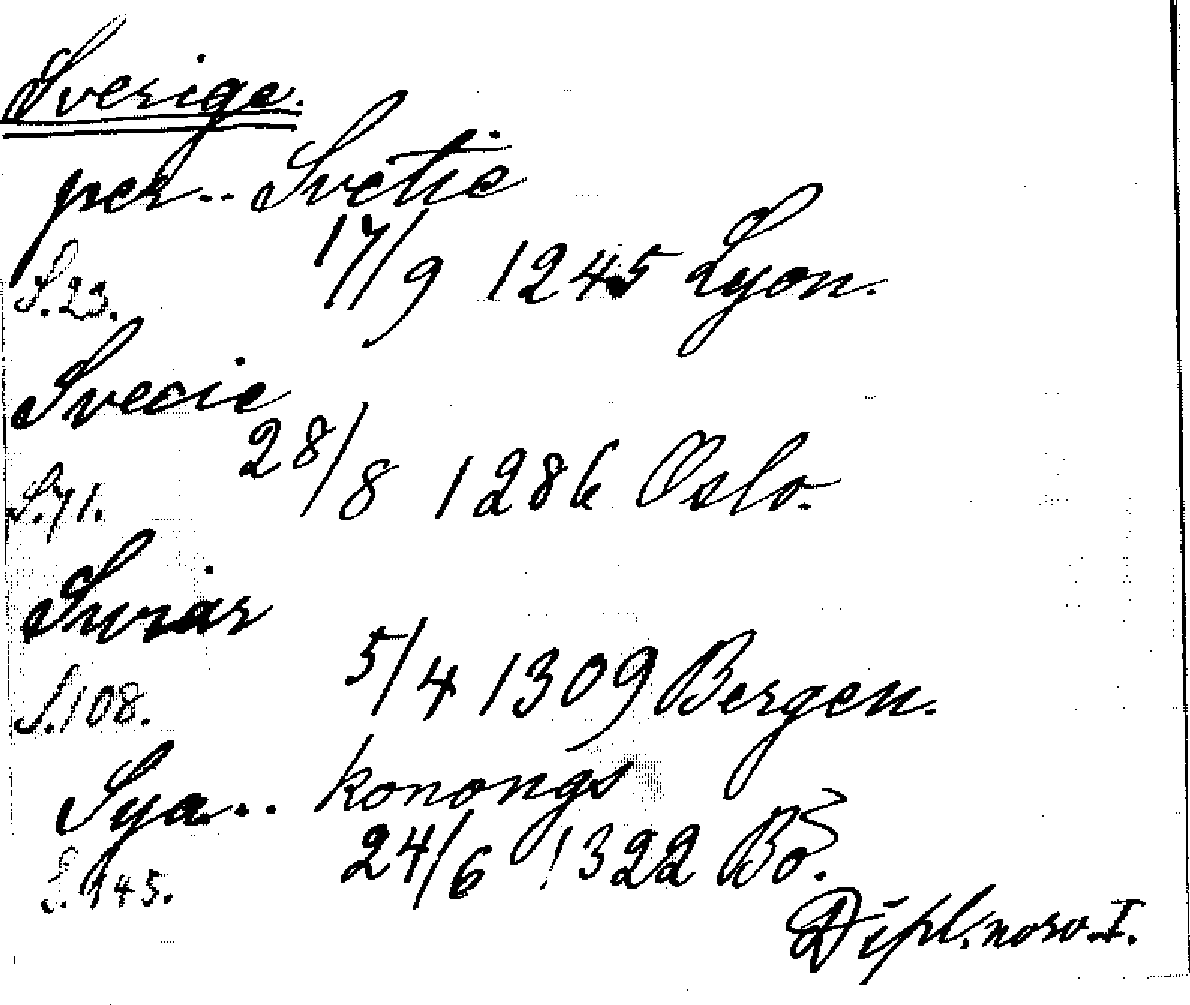 Sverige.
per.. Svetie
S.23. 17/9 1245 Lyon.
Svecie
S.71. 28/8 1286 Oslo.
Sviar
S.108. 5/4 1309 Bergen.
Sya... konongs
S. 145. 24/6 1322 Bö.
Dipl. norv. I.